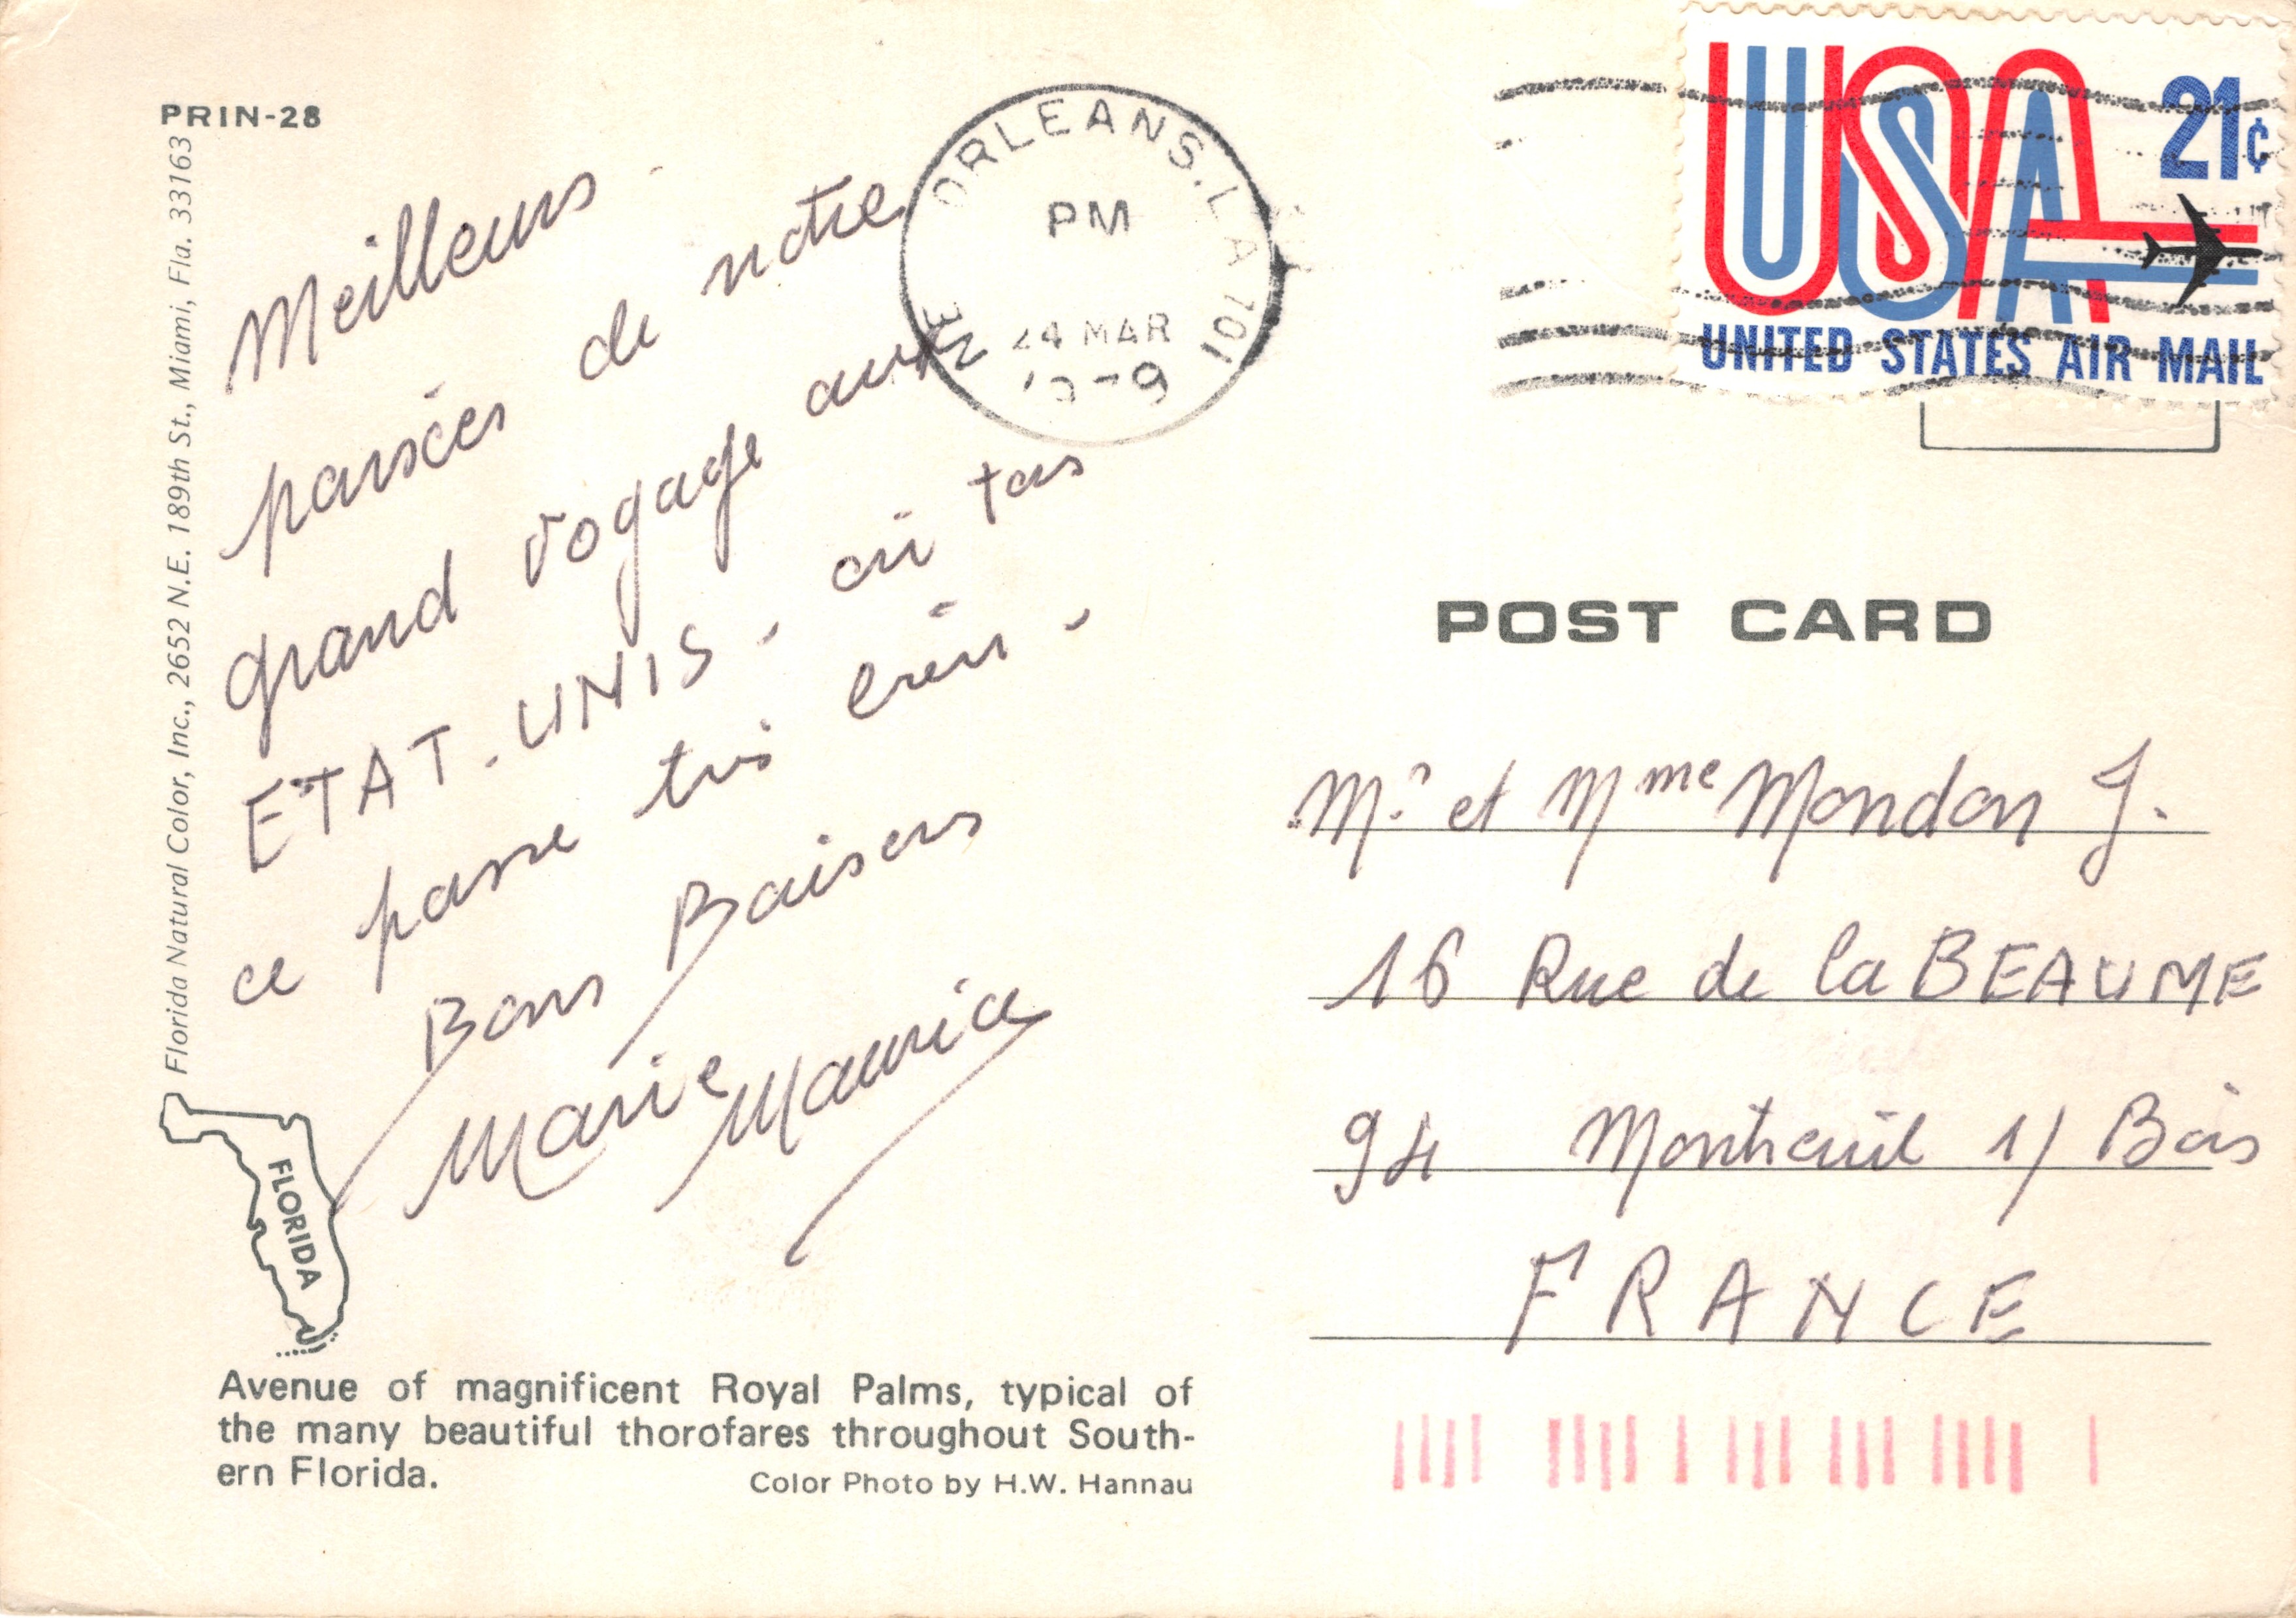 PRIN-28
Florida Natural Color, Inc., 2652 N.E. 189th St., Miami, Fla. 33163
Meilleurs
pensées de notre
grand voyage aux
ETAT-UNIS - où tous
ce passe très bien -
Bons Baisers
Marie Maurice
FLORIDA
Avenue of magnificent Royal Palms, typical of
the many beautiful thorofares throughout South-
ern Florida.
Color Photo by H.W. Hannau
NEW ORLEANS, LA 701
PM
24 MAR
USA
21¢
UNITED STATES AIR MAIL
POST CARD
Mr et Mme Mondon J.
16 Rue de la BEAUME
94 Montreuil s/ Bois
FRANCE